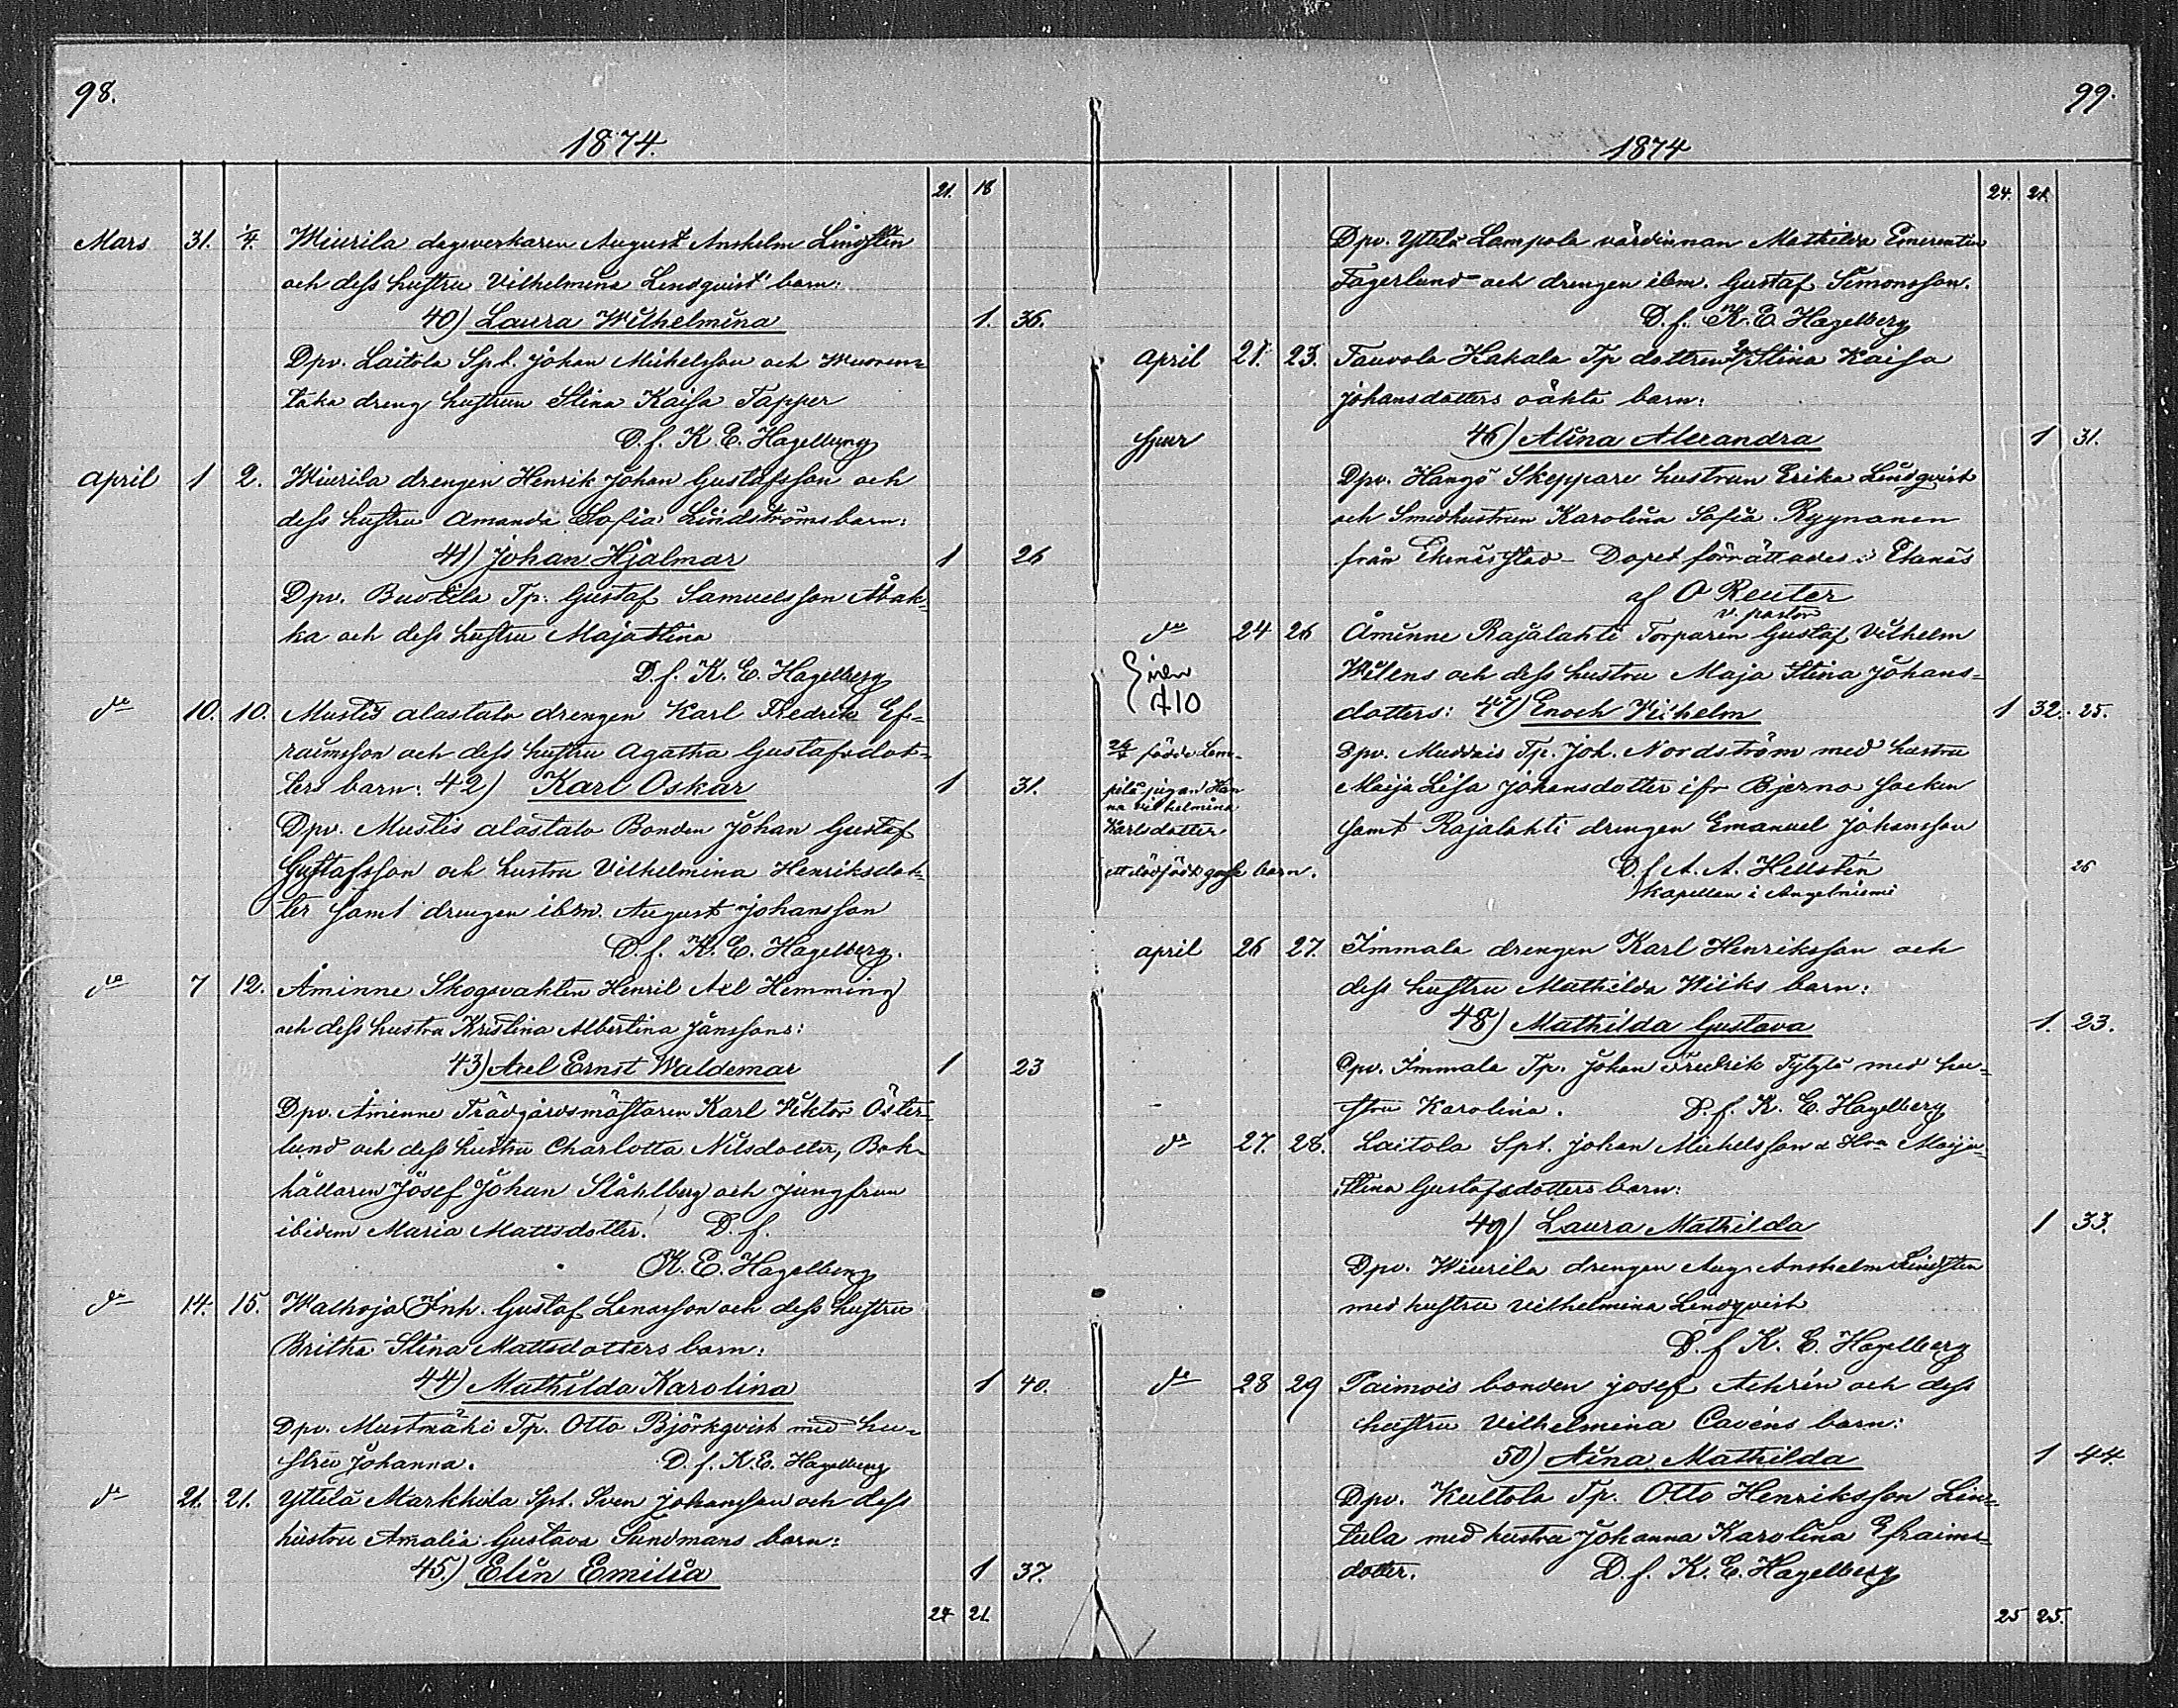 98.
1874.
21. 18
Mars 31. 1/4. Wiurila dagsverkaren August Anshelm Lindstén
och dess hustru Vilhelmina Lindqvist barn:
40) Laura Wilhelmina 1. 36.
Dpv. Laitola Spt. Johan Michelsson och Wuoren-
taka dreng hustrun Stina Kaisa Tapper
D. f. K. E. Hagelberg
April 1 2. Wiurila drengen Henrik Johan Gustafsson och
dess hustru Amanda Sofia Lindströms barn:
41) Johan Hjalmar 1 26
Dpv. Tp. Gustaf Samuelsson
ka och dess hustru Maja Stina
D. f. K. E. Hagelberg
do 10. 10. Mustis alastalo drengen Karl Fredrik Ef-
raimsson och dess hustru Agatha Gustafsdot-
ters barn: 42) Karl Oskar 1 31.
Dpv. Mustis alastalo Bonden Johan Gustaf
Gustafsson och hustru Vilhelmina Henriksdot-
ter samt drengen ibm. August Johansson
D. f. K. E. Hagelberg.
do 7 12. Åminne Skogsvakten Henril Axl Hemming
och dess hustru Kristina Albertina Jånssons:
43) Axel Ernst Waldemar 1 23
Dpv. Åminne Trädgårdsmästaren Karl Viktor Öster-
lund och dess hustru Charlotta Nilsdotter, Bok-
hållaren Josef Johan Ståhlberg och jungfrun
ibidem Maria Mattsdotter. D. f.
K. E. Hagelberg
do 14. 15. Inh. Gustaf Lenasson och dess hustru
Britha Stina Mattsdotters barn:
44) Mathilda Karolina 1 40.
Dpv. Mustmäki Tp. Otto Björkqvist med hu-
stru Johanna. D. f. K. E. Hagelberg
do 21. 21. Yttelä Markkula Spt. Sven Johansson och dess
hustru Amalia Gustava Sundmans barn:
45.) Elin Emilia 1 37.
24 21.
99.
1874
24. 21.
Dpv. Yttelä Lampola värdinnan Mathilda Emerentia
Fagerlund och drengen ibm. Gustaf Simonsson.
D. f. K. E. Hagelberg
April 21. 23. Tauvola Hakala Tp dottren Stina Kaisa
Johansdotters oäkta barn:
46) Alina Alexandra 1 31.
Dpv. Hangö Skeppare hustrun Erika Lindqvist
och Smedhustrun Karolina Sofia Ryynanen
från Ekenäs stad – Dopet förrättades i Ekenäs
af O Reuter
v. pastor
do 24 26 Åminne Rajalahti Torparen Gustaf Vilhelm
Wilens och dess hustru Maja Stina Johans-
A10
dotters: 47) Enoch Vilhelm 1 32. 25.
födde Lem-
Dpv. Tp. Joh. Nordström med hustru
pilä pigan Han
na Vilhelmina
Maija Lisa Johansdotter ifr Bjerno socken
Karlsdotter
samt Rajalahti drengen Emanuel Johansson
ett dödfödt gosse barn.
D. f. A. A. Hellstén 26
Kapellan i Angelniemi
april 26 27. Immala drengen Karl Henriksson och
dess hustru Mathilda Wiiks barn:
48) Mathilda Gustava 1. 23.
Dpv. Immala Tp. Johan Fredrik Tytylä med hu-
stru Karolina. D. f. K. E. Hagelberg
do 27. 28. Laitola Spt. Johan Michelsson & Hru Maija
Stina Gustafsdotters barn:
49) Laura Mathilda 1 33.
Dpv. Wiurila drengen Aug. Anshelm Lindsten
med hustru Vilhelmina Lindqvist
D. f K. E. Hagelberg
do 28 29 Paimois bonden Josef Achrén och dess
hustru Vilhelmina Cavéns barn:
50) Aina Mathilda 1 44.
Dpv. Kultola Tp. Otto Henriksson Lin-
tula med hustru Johanna Karolina Efraims-
dotter. D. f. K. E. Hagelberg
25 25.